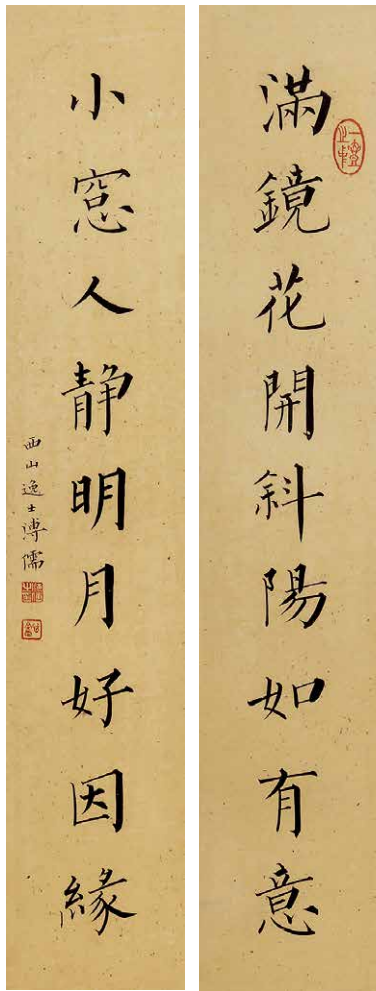 滿鏡花開斜陽如有意
小窓人靜明月好因緣
西山逸士溥儒